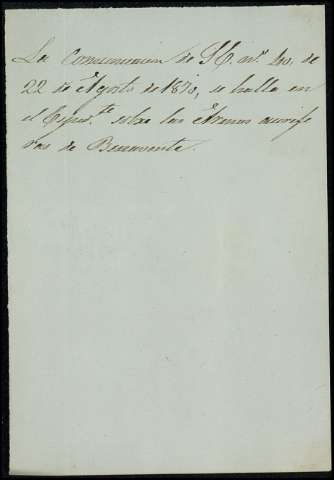 La Comunicacion de S.E. nº. 40. de
22 de Agosto de 1870, se halla en
el Expedte. sobre las Arenas aurife
ras de Benavente.